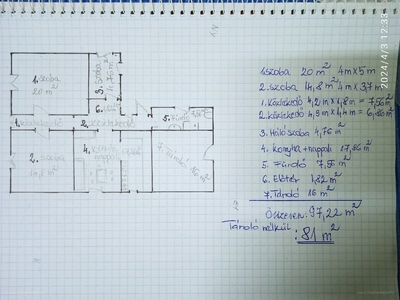 1. szoba
20 m²
3. szoba
4,76 m²
6.
1. közlekedő
2. közlekedő
5. Fürdő
2. szoba
14,8 m²
4. konyha nappali
7. Tároló
16 m²
1.szoba 20 m² 4m x 5m
2. szoba 14,8 m² 4m x 3,7m
1. közlekedő 4,2m x 1,8m = 7,56 m²
2. közlekedő 4,9m x 1,4m = 6,86 m²
3. Hálószoba 4,76 m²
4. Konyha + nappali 17,86 m²
5. Fürdő 7,56 m²
6. Előtér 1,82 m²
7. Tároló 16 m²
Összesen: 97,22 m²
Tároló nélkül
: 81 m²
2024/4/3 12:33